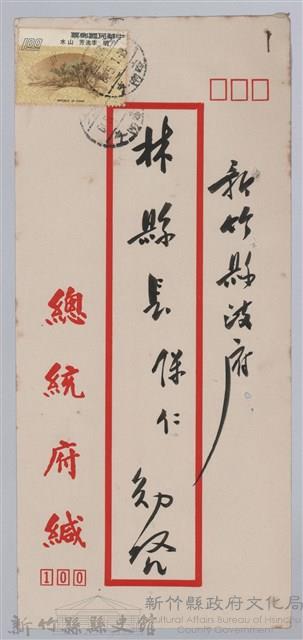 新竹縣政府
林縣長保仁勛啓
總統府緘
100
中華民國郵票
明 李流芳 山水
1.00
REPUBLIC OF CHINA
新竹縣縣史館
新竹縣政府文化局
Cultural Affairs Bureau of Hsinchu
County Government